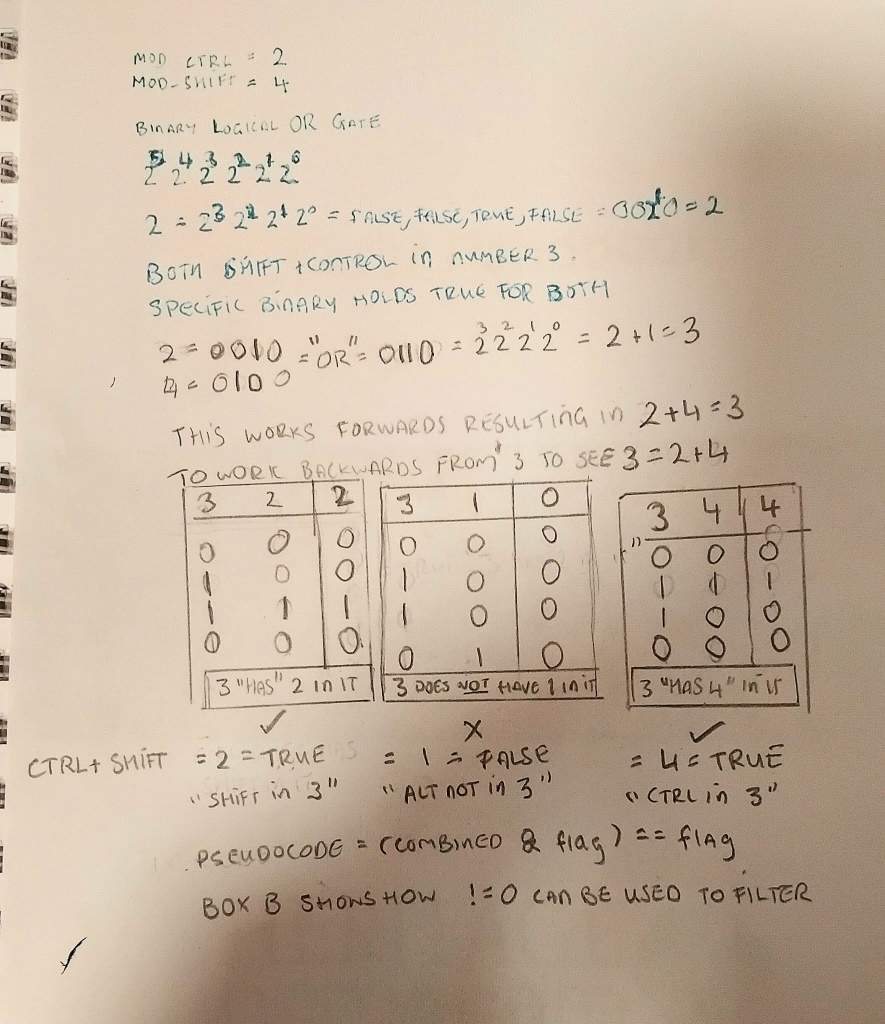 MOD CTRL = 2
MOD-SHIFT = 4
BINARY LOGICAL OR GATE
2⁵ 2⁴ 2³ 2² 2¹ 2⁰
2 = 2³ 2² 2¹ 2⁰ = FALSE, FALSE, TRUE, FALSE = 0010 = 2
BOTH SHIFT + CONTROL in NUMBER 3.
SPECIFIC BINARY HOLDS TRUE FOR BOTH
2 = 0010 = "OR" = 0110 = 2³ 2² 2¹ 2⁰ = 2+1=3
4 = 0100
THIS WORKS FORWARDS RESULTING in 2+4=3
TO WORK BACKWARDS FROM 3 TO SEE 3=2+4
3 2 2 3 1 0 3 4 4
0 0 0 0 0 0 " 0 0 0
1 0 0 1 0 0 1 1 1
1 1 1 1 0 0 1 0 0
0 0 0. 0 1 0 0 0 0
3 "HAS" 2 in IT 3 DOES NOT HAVE 1 in iT 3 "HAS 4" in iT
✓ X ✓
CTRL+ SHIFT = 2 = TRUE = 1 = FALSE = 4 = TRUE
"SHIFT in 3" "ALT NOT in 3" "CTRL in 3"
PSEUDOCODE = (COMBINED & flag) == flAg
BOX B SHOWS HOW !=0 CAN BE USED TO FILTER